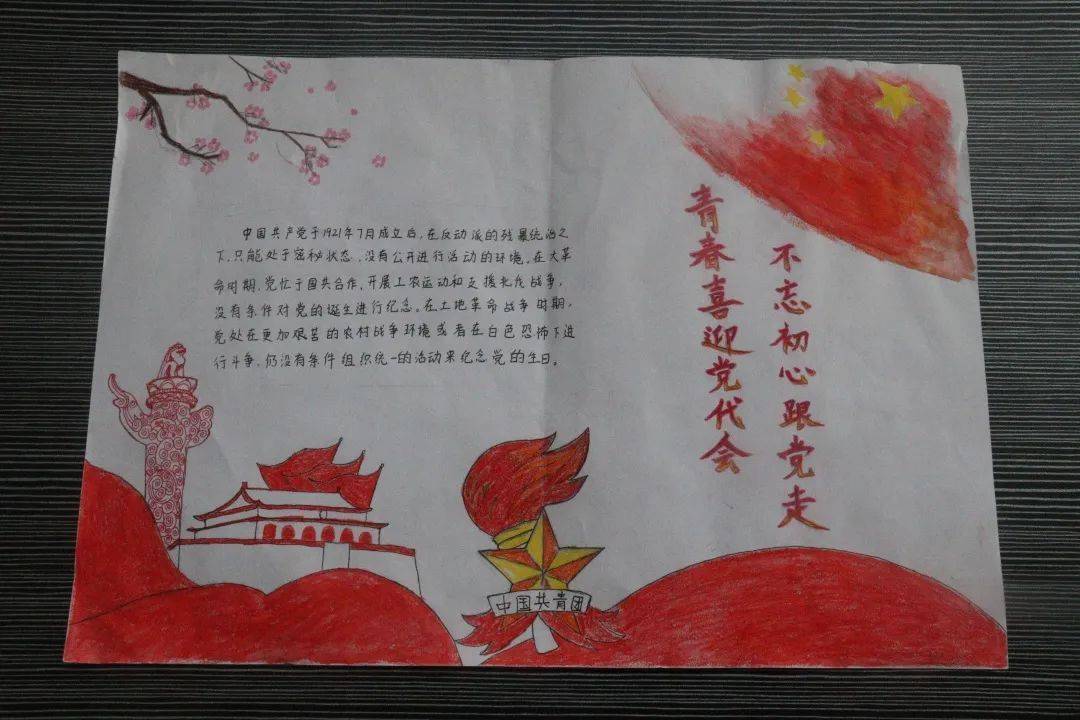 中国共产党于1921年7月成立后，在反动派的残暴统治之
下，只能处于密秘状态，没有公开进行活动的环境。在大革
命时期，党忙于国共合作、开展工农运动和支援北伐战争，
没有条件对党的诞生进行纪念。在土地革命战争时期，
党处在更加艰苦的农村战争环境或者在白色恐怖下进
行斗争，仍没有条件组织统一的活动来纪念党的生日。
不忘初心跟党走
青春喜迎党代会
中国共青团